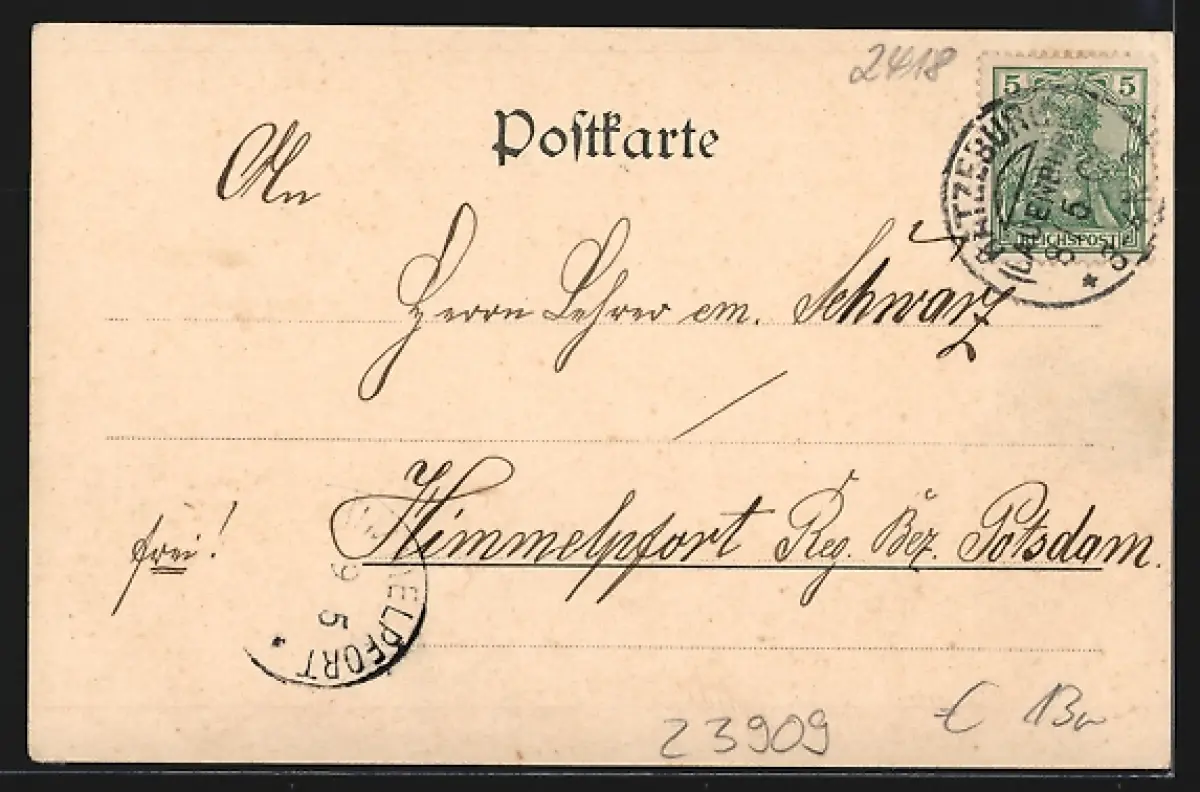 2418
Postkarte
5 5
REICHSPOST
RATZEBURG
(LAUENBURG
8/5
An
Herrn Lehrer em. Schwarz
Himmelpfort Reg. Bez. Potsdam.
frei!
HIMMELPFORT
9 5
23909